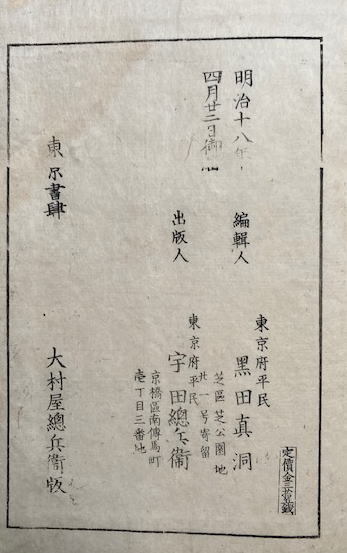 明治十八年
四月廿二日御届
編輯人
東京府平民
黒田真洞
芝區芝公園地
廿一号寄留
出版人
東京府平民
宇田總兵衞
京橋區南傳馬町
壱丁目三番地
東京書肆
大村屋總兵衞版
定價金三拾錢